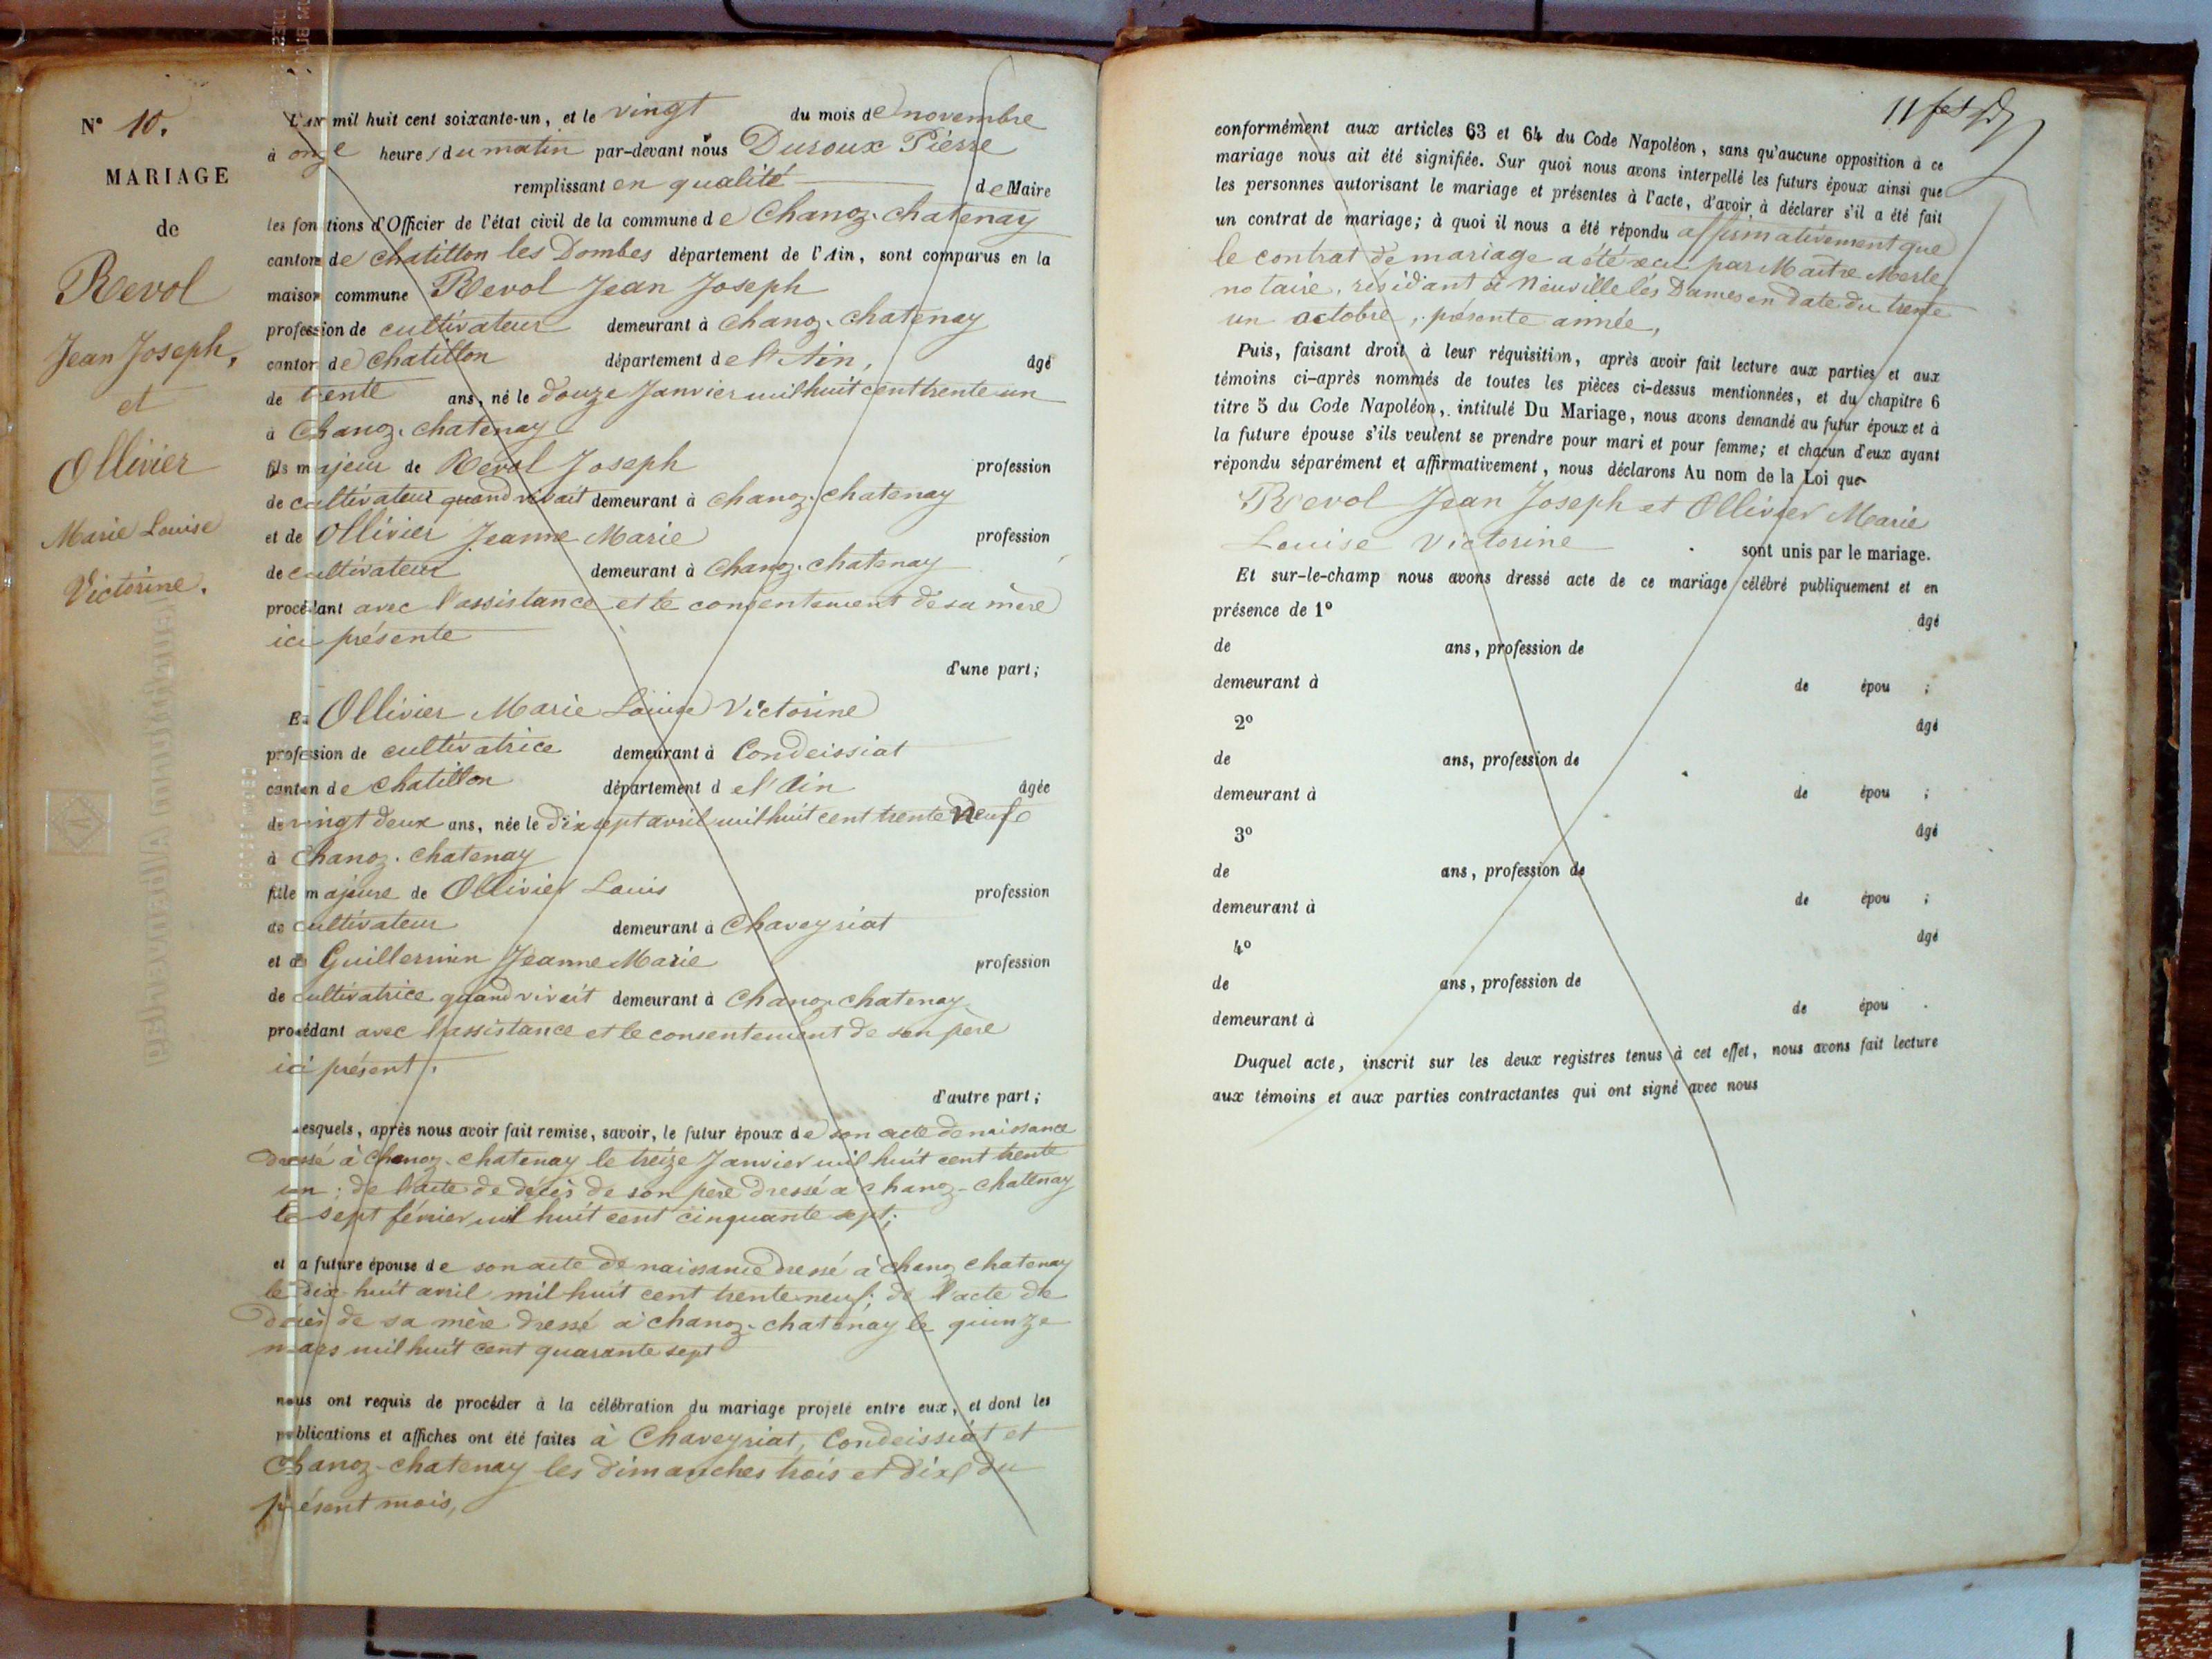 N° 10.
MARIAGE
de
Revol
Jean Joseph,
et
Ollivier
Marie Louise
Victorine.
L'AN mil huit cent soixante-un, et le vingt du mois de novembre
à onze heures du matin par-devant nous Duroux Pierre
remplissant en qualité de Maire
les fonctions d'Officier de l'état civil de la commune de Chanoz-chatenay
canton de chatillon les Dombes département de l'Ain, sont comparus en la
maison commune Revol Jean Joseph
profession de cultivateur demeurant à Chanoz-chatenay
canton de chatillon département de l'Ain, âgé
de trente ans, né le douze Janvier mil huit cent trente un
à Chanoz-chatenay
fils majeur de Revol Joseph profession
de cultivateur quand vivait demeurant à chanoz-chatenay
et de Ollivier Jeanne Marie profession
de cultivateur demeurant à Chanoz-chatenay
procédant avec l'assistance et le consentement de sa mère
ici présente
d'une part;
Et Ollivier Marie Louise Victorine
profession de cultivatrice demeurant à Condeissiat
canton de chatillon département de l'Ain âgée
de vingt deux ans, née le dix sept avril mil huit cent trente neuf
à Chanoz-chatenay
fille majeure de Ollivier Louis profession
de cultivateur demeurant à Chaveyriat
et de Guillermin Jeanne Marie profession
de cultivatrice quand vivait demeurant à Chanoz-chatenay
procédant avec l'assistance et le consentement de son père
ici présent.
d'autre part;
Lesquels, après nous avoir fait remise, savoir, le futur époux de son acte de naissance
dressé à Chanoz-chatenay le treize Janvier mil huit cent trente
un; de l'acte de décès de son père dressé à chanoz-chatenay
le sept février mil huit cent cinquante sept;
et la future épouse de son acte de naissance dressé à chanoz chatenay
le dix huit avril mil huit cent trente neuf; de l'acte de
décès de sa mère dressé à chanoz-chatenay le quinze
mars mil huit cent quarante sept
nous ont requis de procéder à la célébration du mariage projeté entre eux, et dont les
publications et affiches ont été faites à Chaveyriat, Condeissiat et
Chanoz-chatenay les dimanches trois et dix du
présent mois,
conformément aux articles 63 et 64 du Code Napoléon, sans qu'aucune opposition à ce
mariage nous ait été signifiée. Sur quoi nous avons interpellé les futurs époux ainsi que
les personnes autorisant le mariage et présentes à l'acte, d'avoir à déclarer s'il a été fait
un contrat de mariage; à quoi il nous a été répondu affirmativement que
le contrat de mariage a été par Maître Merle
notaire, résidant à Neuville les Dames en date du trente
un octobre, présente année,
Puis, faisant droit à leur réquisition, après avoir fait lecture aux parties et aux
témoins ci-après nommés de toutes les pièces ci-dessus mentionnées, et du chapitre 6
titre 5 du Code Napoléon, intitulé Du Mariage, nous avons demandé au futur époux et à
la future épouse s'ils veulent se prendre pour mari et pour femme; et chacun d'eux ayant
répondu séparément et affirmativement, nous déclarons Au nom de la Loi que
Revol Jean Joseph et Ollivier Marie
Louise Victorine sont unis par le mariage.
Et sur-le-champ nous avons dressé acte de ce mariage célébré publiquement et en
présence de 1° âgé
de ans, profession de
demeurant à de épou ;
2° âgé
de ans, profession de
demeurant à de épou ;
3° âgé
de ans, profession de
demeurant à de épou ;
4° âgé
de ans, profession de
demeurant à de épou .
Duquel acte, inscrit sur les deux registres tenus à cet effet, nous avons fait lecture
aux témoins et aux parties contractantes qui ont signé avec nous